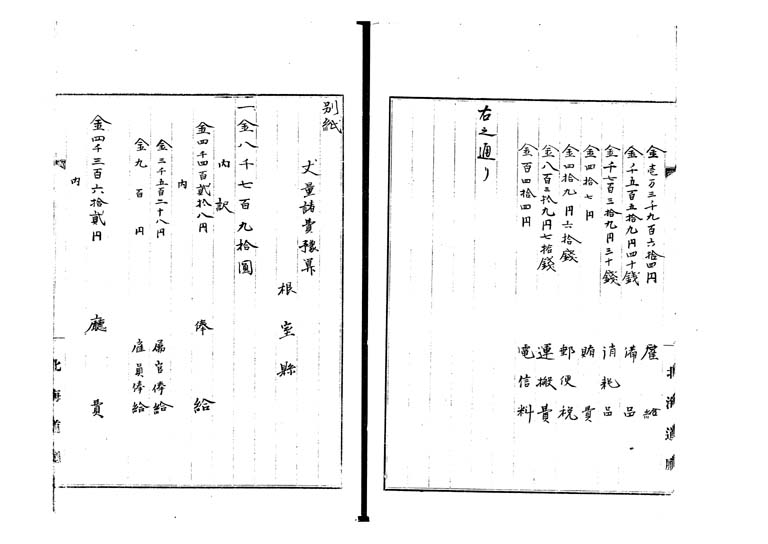 金壱万三千九百六拾四円 雇給
金千五百五拾九円四十銭 備品
金千七百三拾九円三十銭 消耗品
金四拾七円 賄費
金四拾九円六拾銭 郵便税
金八百三拾九円七拾銭 運搬費
金百四拾四円 電信料
右之通リ
北海道廳
別紙
丈量諸費豫算
根室縣
一金八千七百九拾圓
内訳
金四千四百貳拾八円 俸給
内
金三千五百二十八円 属官俸給
金九百円 雇員俸給
金四千三百六拾貳円 廳費
内
北海道廳